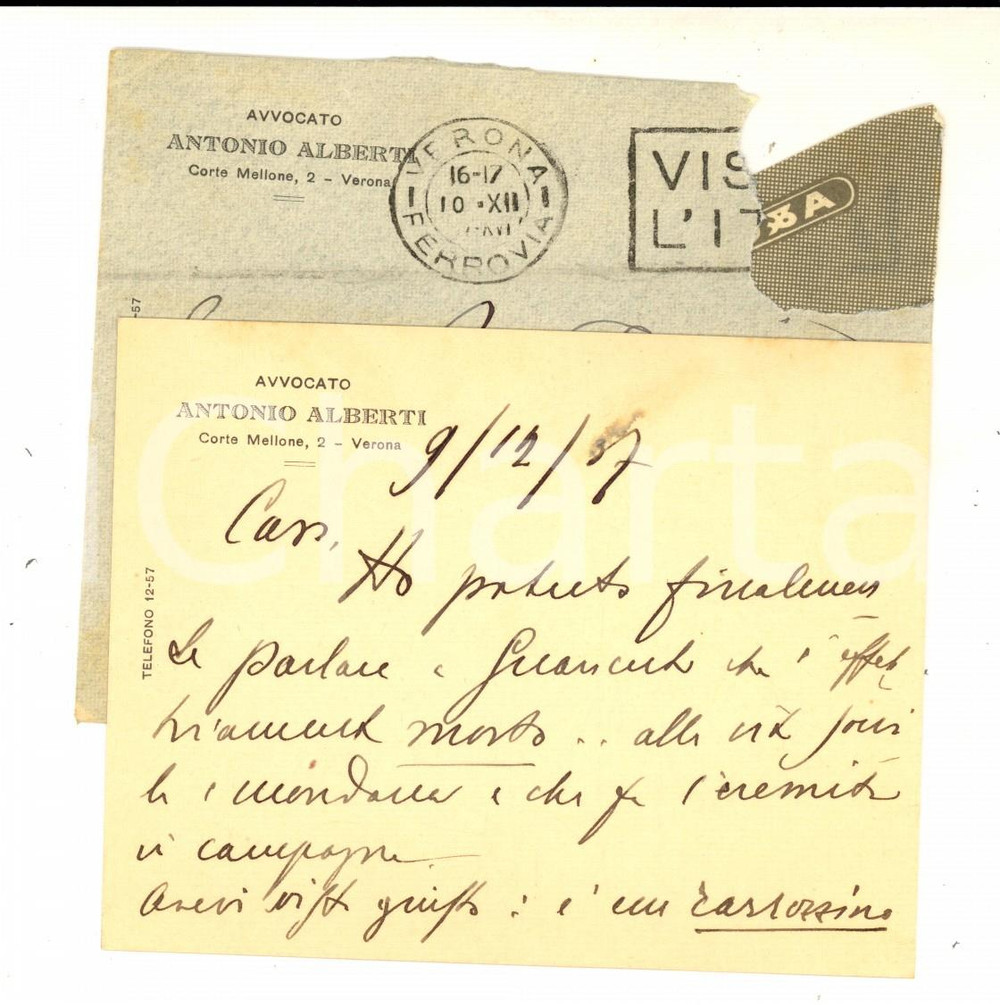 AVVOCATO
ANTONIO ALBERTI
Corte Mellone, 2 - Verona
VERONA
16-17
10 •XII
FERROVIA
VIS
L'IT
-57
AVVOCATO
ANTONIO ALBERTI
Corte Mellone, 2 - Verona
TELEFONO 12-57
9/12/37
Caro,
Ho potuto finalmen
te parlare a che è effet
tivamente morto .. alla vita
le e mondana e che fa l'eremita
in campagna
Avevi visto giusto : è un
Charta